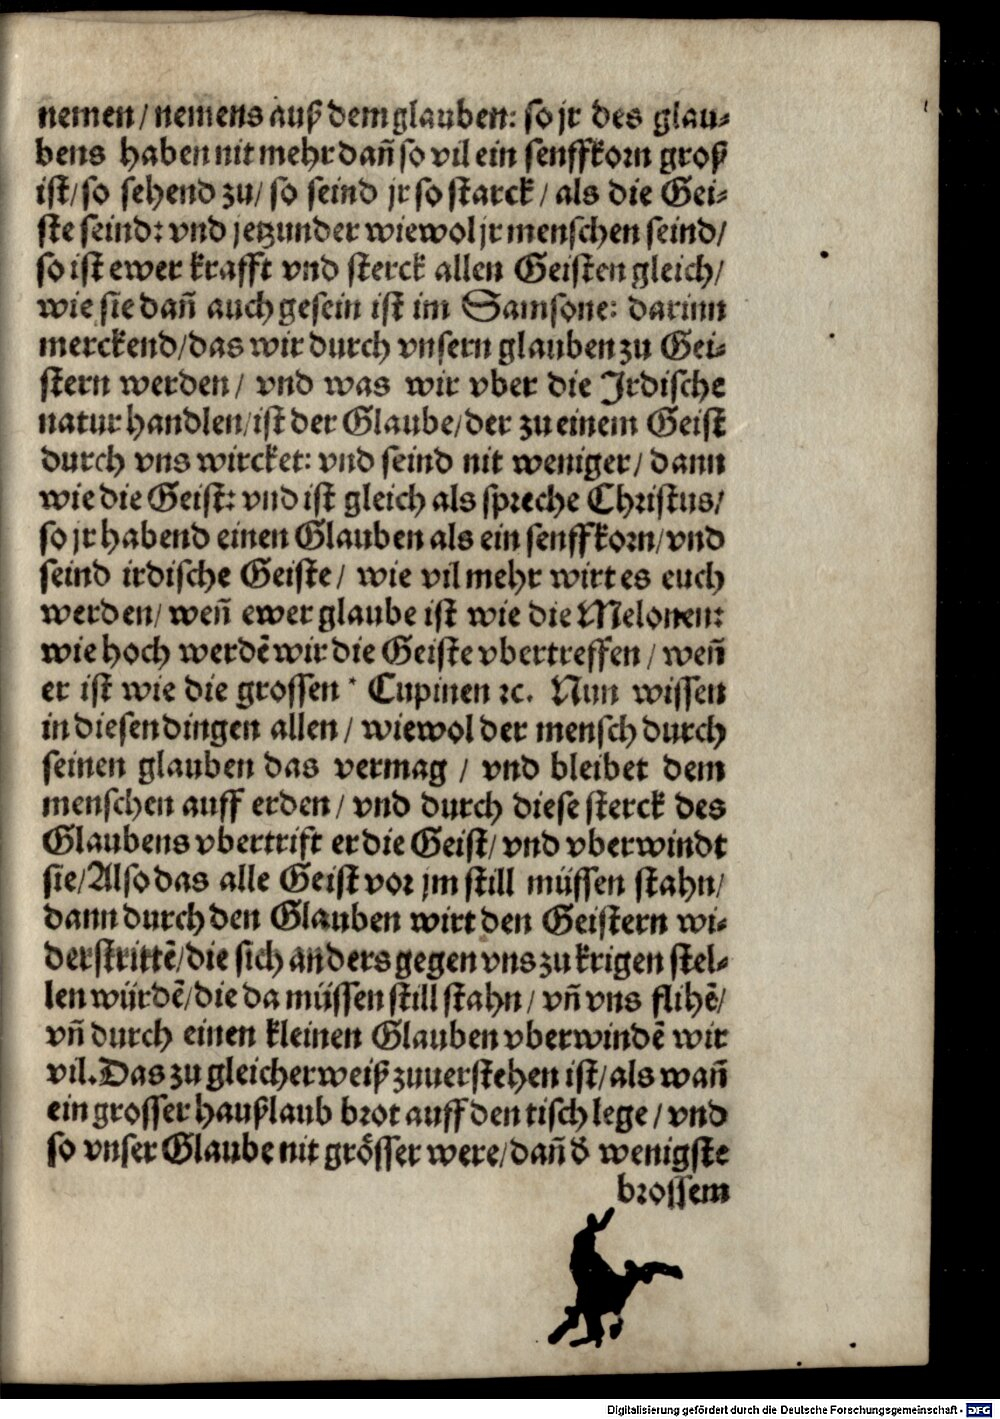 nemen / nemens auß dem glauben: so jr des glau-
bens haben nit mehr dañ so vil ein senffkorn groß
ist / so sehend zu / so seind jr so starck / als die Gei-
ste seind: vnd jetzunder wiewol jr menschen seind /
so ist ewer krafft vnd sterck allen Geisten gleich /
wie sie dañ auch gesein ist im Samsone: darinn
merckend / das wir durch vnsern glauben zu Gei-
stern werden / vnd was wir vber die Jrdische
natur handlen / ist der Glaube / der zu einem Geist
durch vns wircket: vnd seind nit weniger / dann
wie die Geist: vnd ist gleich als spreche Christus /
so jr habend einen Glauben als ein senffkorn / vnd
seind irdische Geiste / wie vil mehr wirt es euch
werden / weñ ewer glaube ist wie die Melonen:
wie hoch werdẽ wir die Geiste vbertreffen / weñ
er ist wie die grossen Cupinen ꝛc. Nun wissen
in diesen dingen allen / wiewol der mensch durch
seinen glauben das vermag / vnd bleibet dem
menschen auff erden / vnd durch diese sterck des
Glaubens vbertrift er die Geist / vnd vberwindt
sie / Also das alle Geist vor jm still müssen stahn /
dann durch den Glauben wirt den Geistern wi-
derstrittẽ / die sich anders gegen vns zu krigen stel-
len würdẽ / die da müssen still stahn / vñ vns flihẽ /
vñ durch einen kleinen Glauben vberwindẽ wir
vil. Das zu gleicher weiß zuuerstehen ist / als wañ
ein grosser haußlaub brot auff den tisch lege / vnd
so vnser Glaube nit grösser were / dañ ð wenigste
brossem
Digitalisierung gefördert durch die Deutsche Forschungsgemeinschaft - DFG